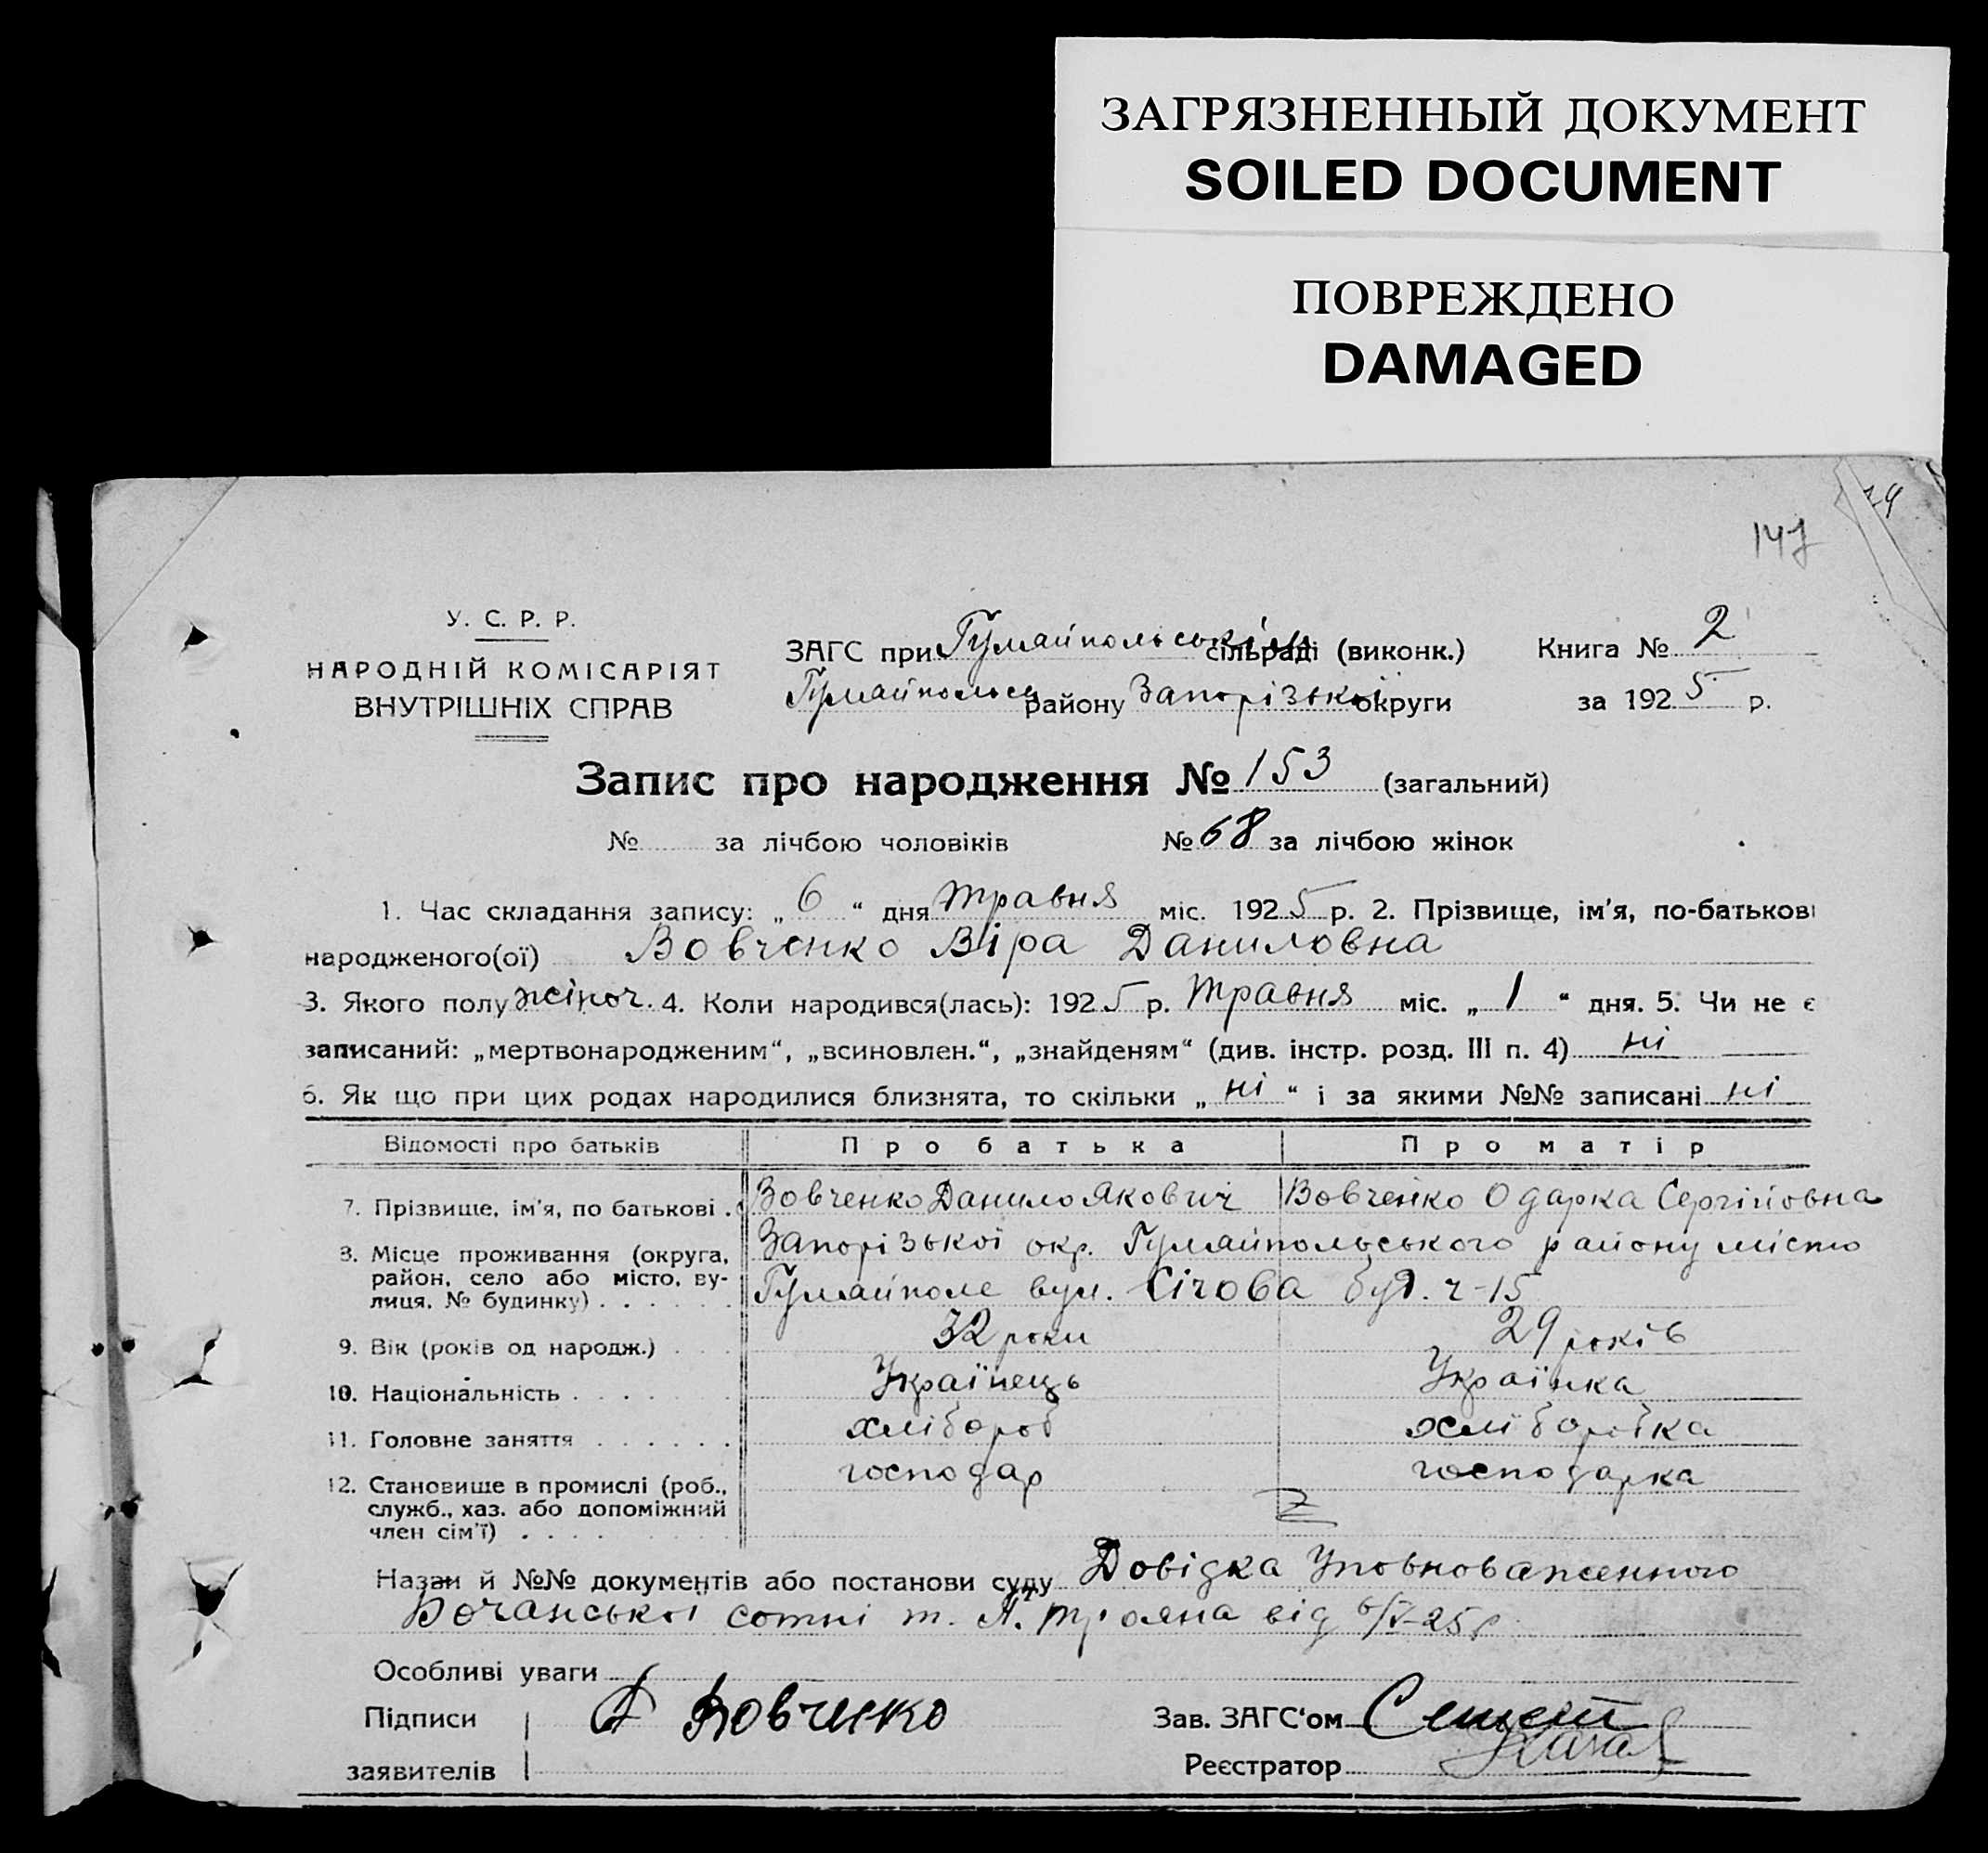 ЗАГРЯЗНЕННЫЙ ДОКУМЕНТ
SOILED DOCUMENT
ПОВРЕЖДЕНО
DAMAGED
147
У. С. Р. Р.
НАРОДНІЙ КОМІСАРІЯТ
ВНУТРІШНІХ СПРАВ
ЗАГС при Гуляйпольськім сільраді (виконк.)
Гуляйпольск району Запорізької округи
Книга № 2
за 1925 р.
Запис про народження № 153 (загальний)
№ за лічбою чоловіків № 68 за лічбою жінок
1. Час складання запису: „ 6 “ дня травня міс. 1925 р. 2. Прізвище, ім'я, по-батькові
народженого(ої) Вовченко Віра Даниловна
3. Якого полу жіноч. 4. Коли народився(лась): 1925 р. травня міс. „ 1 “ дня. 5. Чи не є
записаний: „мертвонародженим“, „всиновлен.“, „знайденям“ (див. інстр. розд. III п. 4) ні
6. Як що при цих родах народилися близнята, то скільки „ ні “ і за якими №№ записані ні
Відомості про батьків Про батька Про матір
7. Прізвище, ім'я, по батькові . Вовченко Данило Якович Вовченко Одарка Сергійовна
8. Місце проживання (округа, район, село або місто, вулиця, № будинку) . . . . . . Запорізької окр. Гуляйпольського району місто
Гуляйполе вул. Січова буд. ч-15
9. Вік (років од народж.) . . . 32 роки 29 років
10. Національність . . . . . Українець Українка
11. Головне заняття . . . . . . хлібороб хліборобка
12. Становище в промислі (роб., служб., хаз. або допоміжний член сім'ї) . . . . господар господарка
Назви й №№ документів або постанови суду Довідка Уповноваженного
Бочанської сотні т. А. Трояна від 6/V-25 р.
Особливі уваги
Підписи
заявителів
Д Вовченко
Зав. ЗАГС'ом
Реєстратор